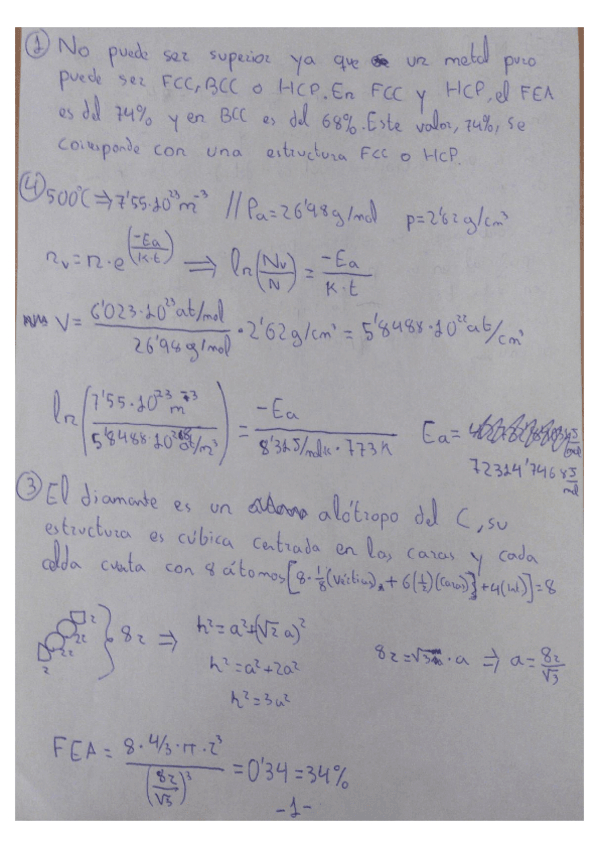 ① No puede ser superior ya que un metal puro
puede ser FCC, BCC o HCP. En FCC y HCP, el FEA
es del 74% y en BCC es del 68%. Este valor, 74%, se
corresponde con una estructura FCC o HCP.
④ 500ºC ⇒ 7'55·10²³ m⁻³ // Pa = 26'98 g/mol ρ = 2'62 g/cm³
n_v = n·e^(-Ea/K·t) ⇒ ln(Nv/N) = -Ea/K·t
V = 6'023·10²³ at/mol / 26'98 g/mol · 2'62 g/cm³ = 5'8488·10²² at/cm³
ln(7'55·10²³ m⁻³ / 5'8488·10²⁸ at/m³) = -Ea / 8'31 J/molK · 773 K Ea =
72314'7468 J/mol
③ El diamante es un alótropo del C, su
estructura es cúbica centrada en las caras y cada
celda cuenta con 8 átomos [8·1/8 (vértices) + 6(1/2)(caras)] + 4(int)] = 8
r 2r 2r 2r r } 8r ⇒ h² = a² + (√2 a)²
h² = a² + 2a² 8r = √3 · a ⇒ a = 8r/√3
h² = 3a²
FEA = 8·4/3·π·r³ / (8r/√3)³ = 0'34 = 34%
-1-